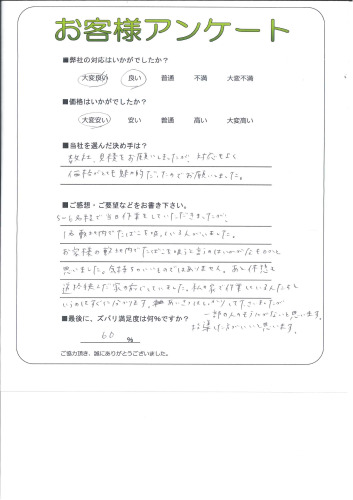 お客様アンケート
■弊社の対応はいかがでしたか?
大変良い 良い 普通 不満 大変不満
■価格はいかがでしたか?
大変安い 安い 普通 高い 大変高い
■当社を選んだ決め手は?
数社、見積をお願いしましたが 対応もよく
価格がとても魅力的だったのでお願いしました。
■ご感想・ご要望などをお書き下さい。
5〜6名程で当日作業をしていただきましたが、
1名敷地内でたばこを吸っている人がいました。
お客様の敷地内でたばこを吸うと言うのはいかがなものかと
思いました。気持ちのいいものではありません。あと休憩を
道路挟んだ家の前でしていました。私の家で作業している人たちと
いうのはすぐに分かります。あいさつはしっかりして下さいましたが
一部の人のもうしがないと思います。
指導した方がいいと思います。
■最後に、ズバリ満足度は何%ですか?
60 %
ご協力頂き、誠にありがとうございました。